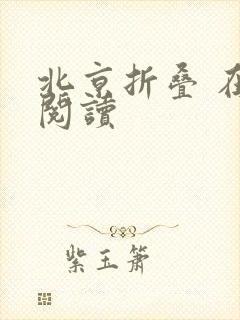 北京折叠 在
閱讀
紫玉箫